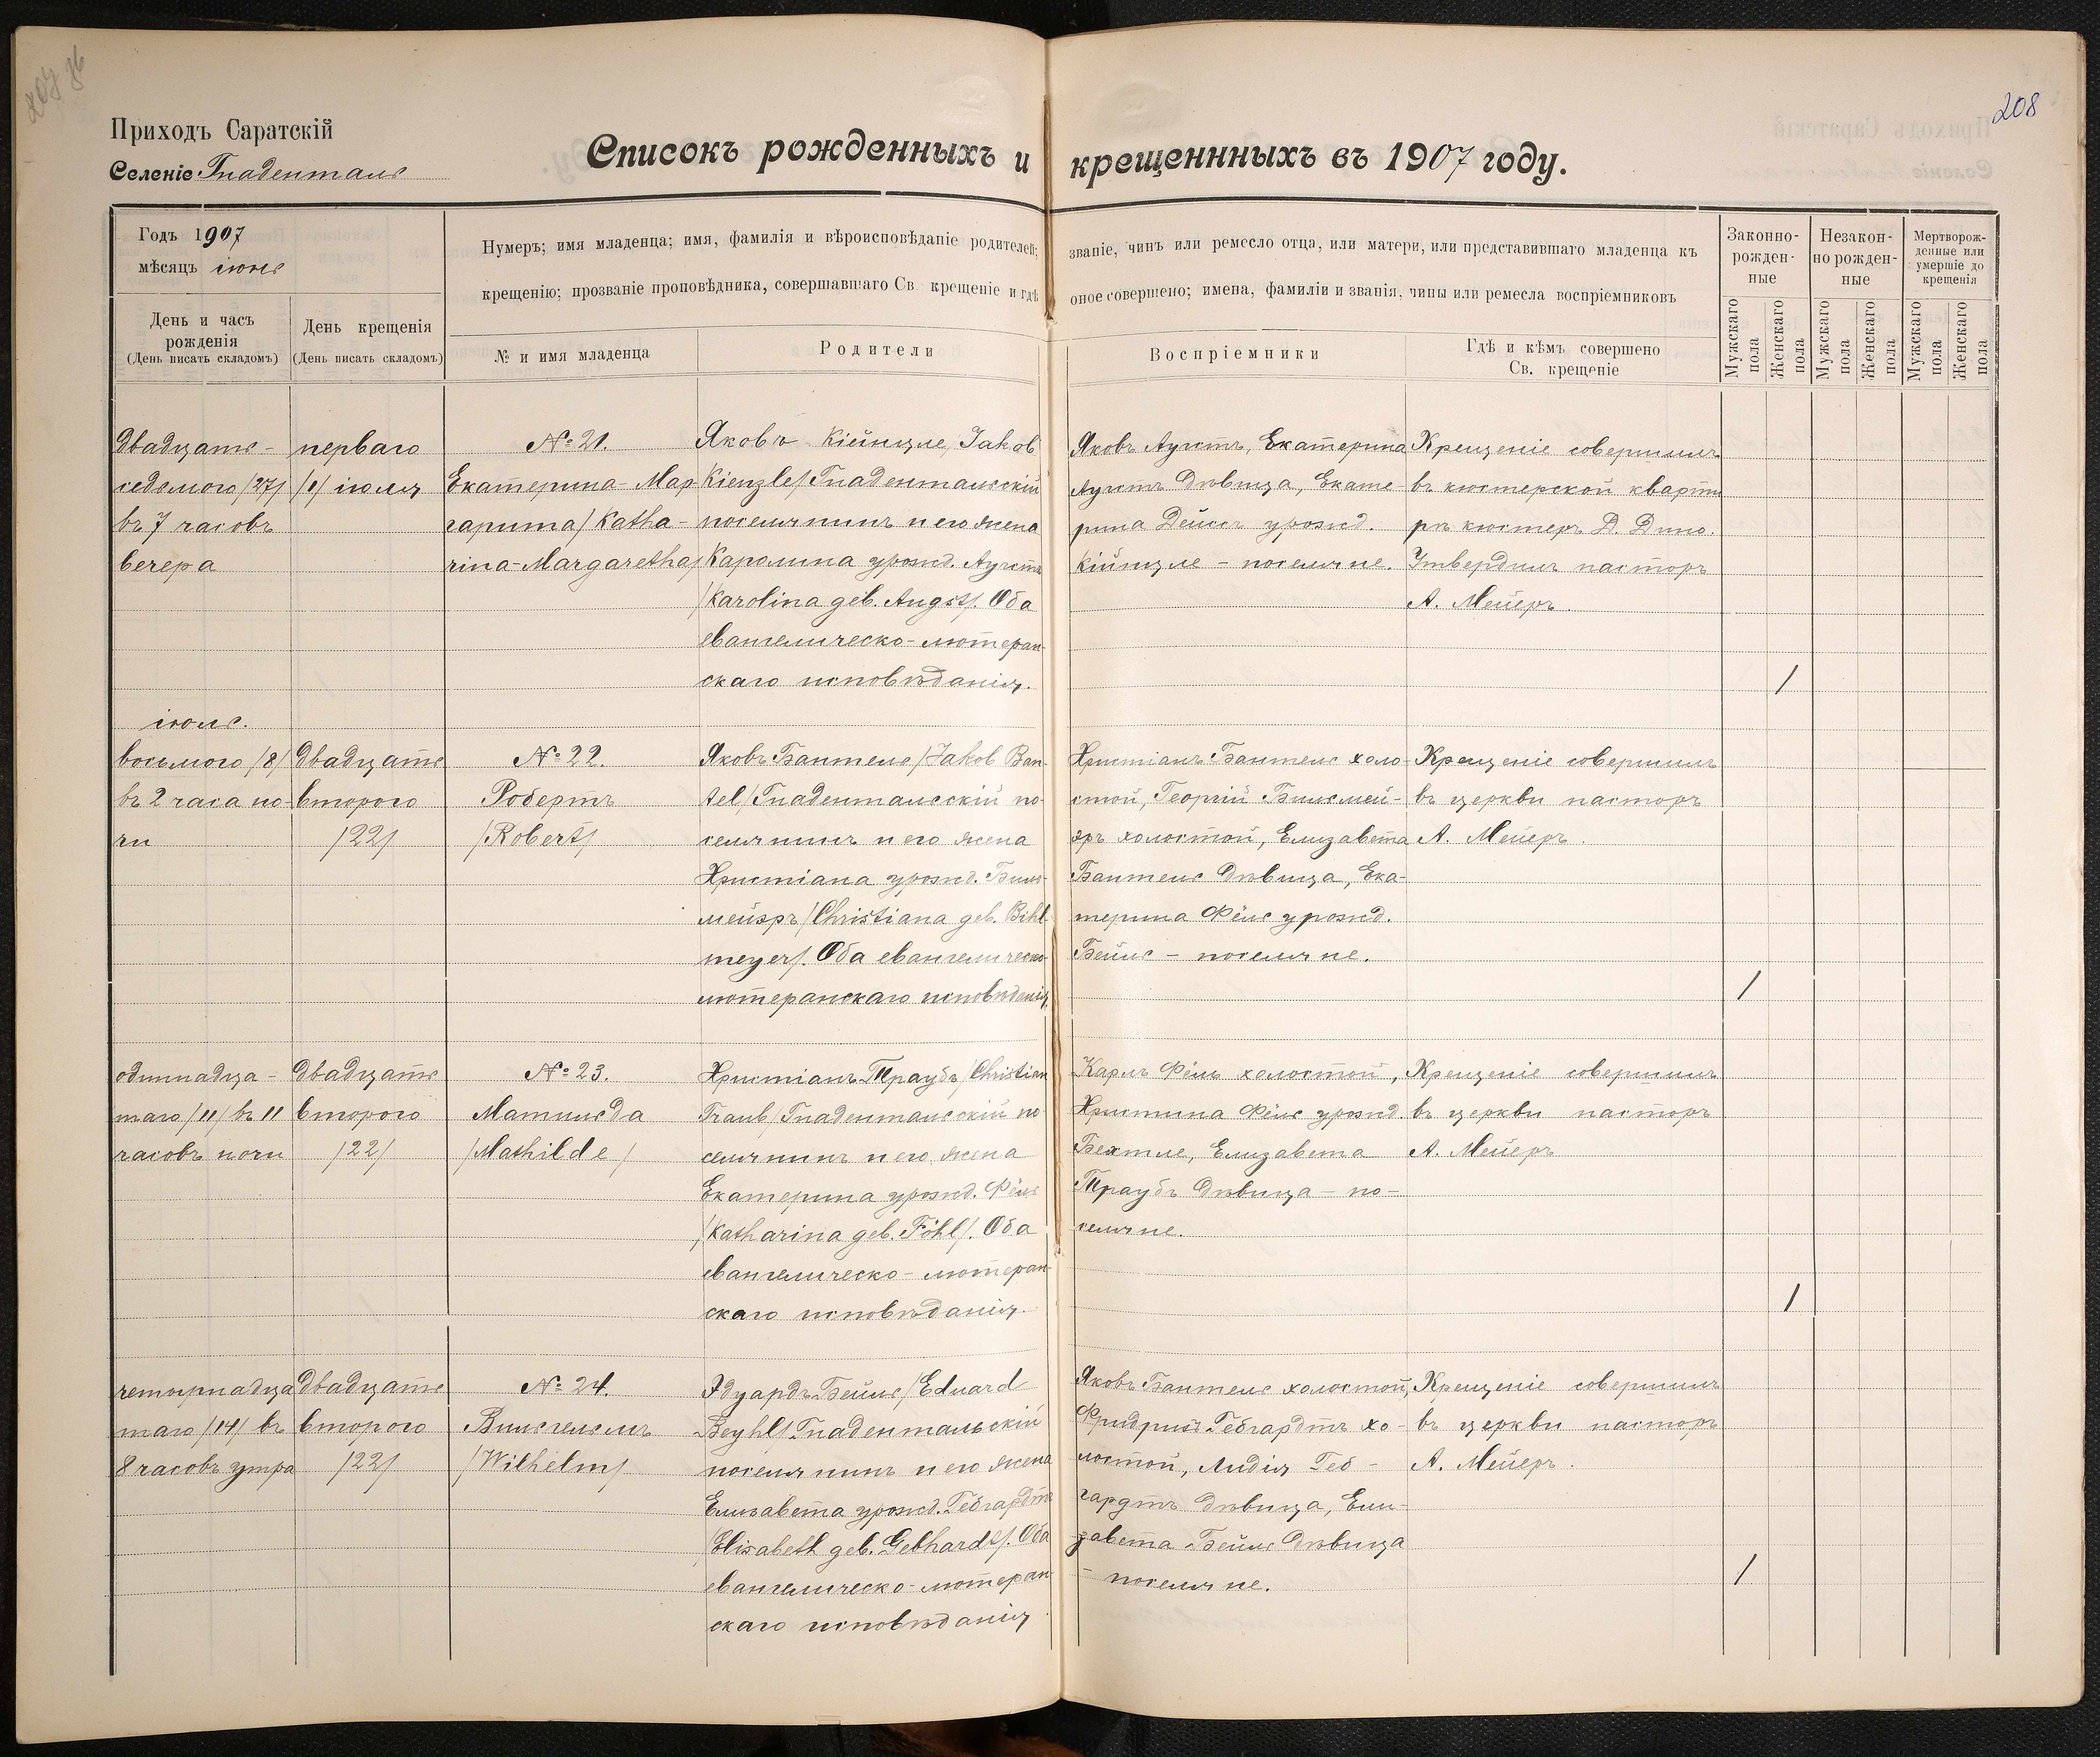 208
Приходъ Саратскій
Селеніе Гнаденталь
Списокъ рожденныхъ и крещеннныхъ въ 1907 году.
Годъ 1907
мѣсяцъ іюнь
День и часъ
рожденія
(День писать складомъ)
День крещенія
(День писать складомъ)
Нумеръ; имя младенца; имя, фамилія и вѣроисповѣданіе родителей;
крещенію; прозваніе проповѣдника, совершавшаго Св крещеніе и гдѣ
№ и имя младенца
Родители
званіе, чинъ или ремесло отца, или матери, или представившаго младенца къ
оное совершено; имена, фамиліи и званія, чины или ремесла воспріемниковъ
Воспріемники
Гдѣ и кѣмъ совершено
Св. крещеніе
Законно-
рожден-
ные
Незакон-
но рожден-
ные
Мертворож-
денные или
умершіе до
крещенія
Мужскаго
пола
Женскаго
пола
Мужскаго
пола
Женскаго
пола
Мужскаго
пола
Женскаго
пола
двадцать-
седьмого /27/
въ 7 часовъ
вечера
перваго
/1/ іюля
№ 21.
Екатерина-Мар
гарита /Katha-
rina-Margaretha/
Яковъ Кійнцле, Jakob
Kienzle/ Гнадентальскій
поселянинъ и его жена
Каролина урожд. Аугстъ
/Karolina geb. Augst/. Оба
евангелическо-лютеран-
скаго исповѣданія.
Яковъ Аугстъ, Екатерина
Аугстъ дѣвица, Екате-
рина Дейсъ урожд.
Кійнцле - поселяне.
Крещеніе совершилъ
въ кюстерской кварти
рѣ кюстеръ Д. Дино.
Утвердилъ пасторъ
А. Мейеръ.
/
іюль.
восьмого /8/
въ 2 часа но-
чи
двадцать
второго
/22/
№ 22.
Робертъ
/Robert/
Яковъ Бантель /Jakob Ban-
tel/ Гнадентальскій по-
селянинъ и его жена
Христіана урожд. Биль-
мейэръ /Christiana geb. Bihl-
meyer/. Оба евангелическо-
лютеранскаго исповѣданія.
Христіанъ Бантель холо-
стой, Георгій Бильмей-
эръ холостой, Елизавета
Бантель дѣвица, Ека-
терина Фёль урожд.
Бейль - поселяне.
Крещеніе совершилъ
въ церкви пасторъ
А. Мейеръ.
/
одиннадца-
таго /11/ въ 11
часовъ ночи
двадцать
второго
/22/
№ 23.
Матильда
/Mathilde/
Христіанъ Траубъ /Christian
Traub/ Гнадентальскій по
селянинъ и его жена
Екатерина урожд. Фёль
/Katharina geb. Föhl/. Оба
евангелическо-лютеран-
скаго исповѣданія.
Карлъ Фёль холостой,
Христина Фёль урожд.
Бехтле, Елизавета
Траубъ дѣвица - по-
селяне.
Крещеніе совершилъ
въ церкви пасторъ
А. Мейеръ
/
четырнадца
таго /14/ въ
8 часовъ утра
двадцать
второго
/22/
№ 24.
Вильгельмъ
/Wilhelm/
Эдуардъ Бейль /Eduard
Beyhl/ Гнадентальскій
поселянинъ и его жена
Елизавета урожд. Гебгардтъ
/Elisabeth geb. Gebhardt/. Оба
евангелическо-лютеран-
скаго исповѣданія
Яковъ Бантель холостой,
Фридрихъ Гебгардтъ хо-
лостой, Лидія Геб-
гардтъ дѣвица, Ели-
завета Бейль дѣвица
- поселяне.
Крещеніе совершилъ
въ церкви пасторъ
А. Мейеръ.
/